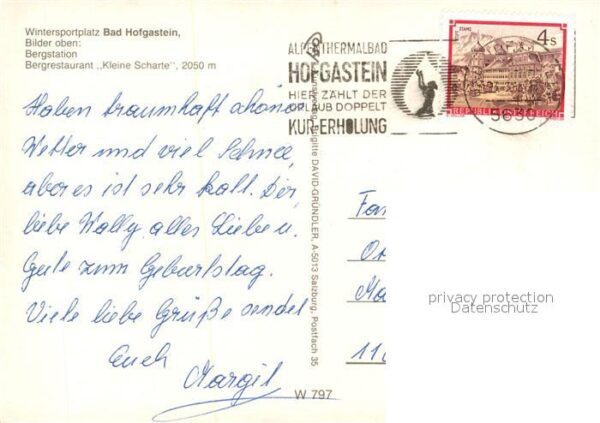 Wintersportplatz Bad Hofgastein,
Bilder oben:
Bergstation
Bergrestaurant „Kleine Scharte", 2050 m
Haben traumhaft schönes
Wetter und viel Schnee,
aber es ist sehr kalt. Dir,
liebe Wally alles Liebe u.
Gute zum Geburtstag.
Viele liebe Grüße sendet
Euch
Margit
Brigitte DAVID-GRÜNDLER, A-5013 Salzburg, Postfach 35
W 797
ALPENTHERMALBAD
HOFGASTEIN
HIER ZÄHLT DER
URLAUB DOPPELT
KUR-ERHOLUNG
STAMS
4 S
REPUBLIK ÖSTERREICH
5630
Fam
Ma
11
privacy protection
Datenschutz